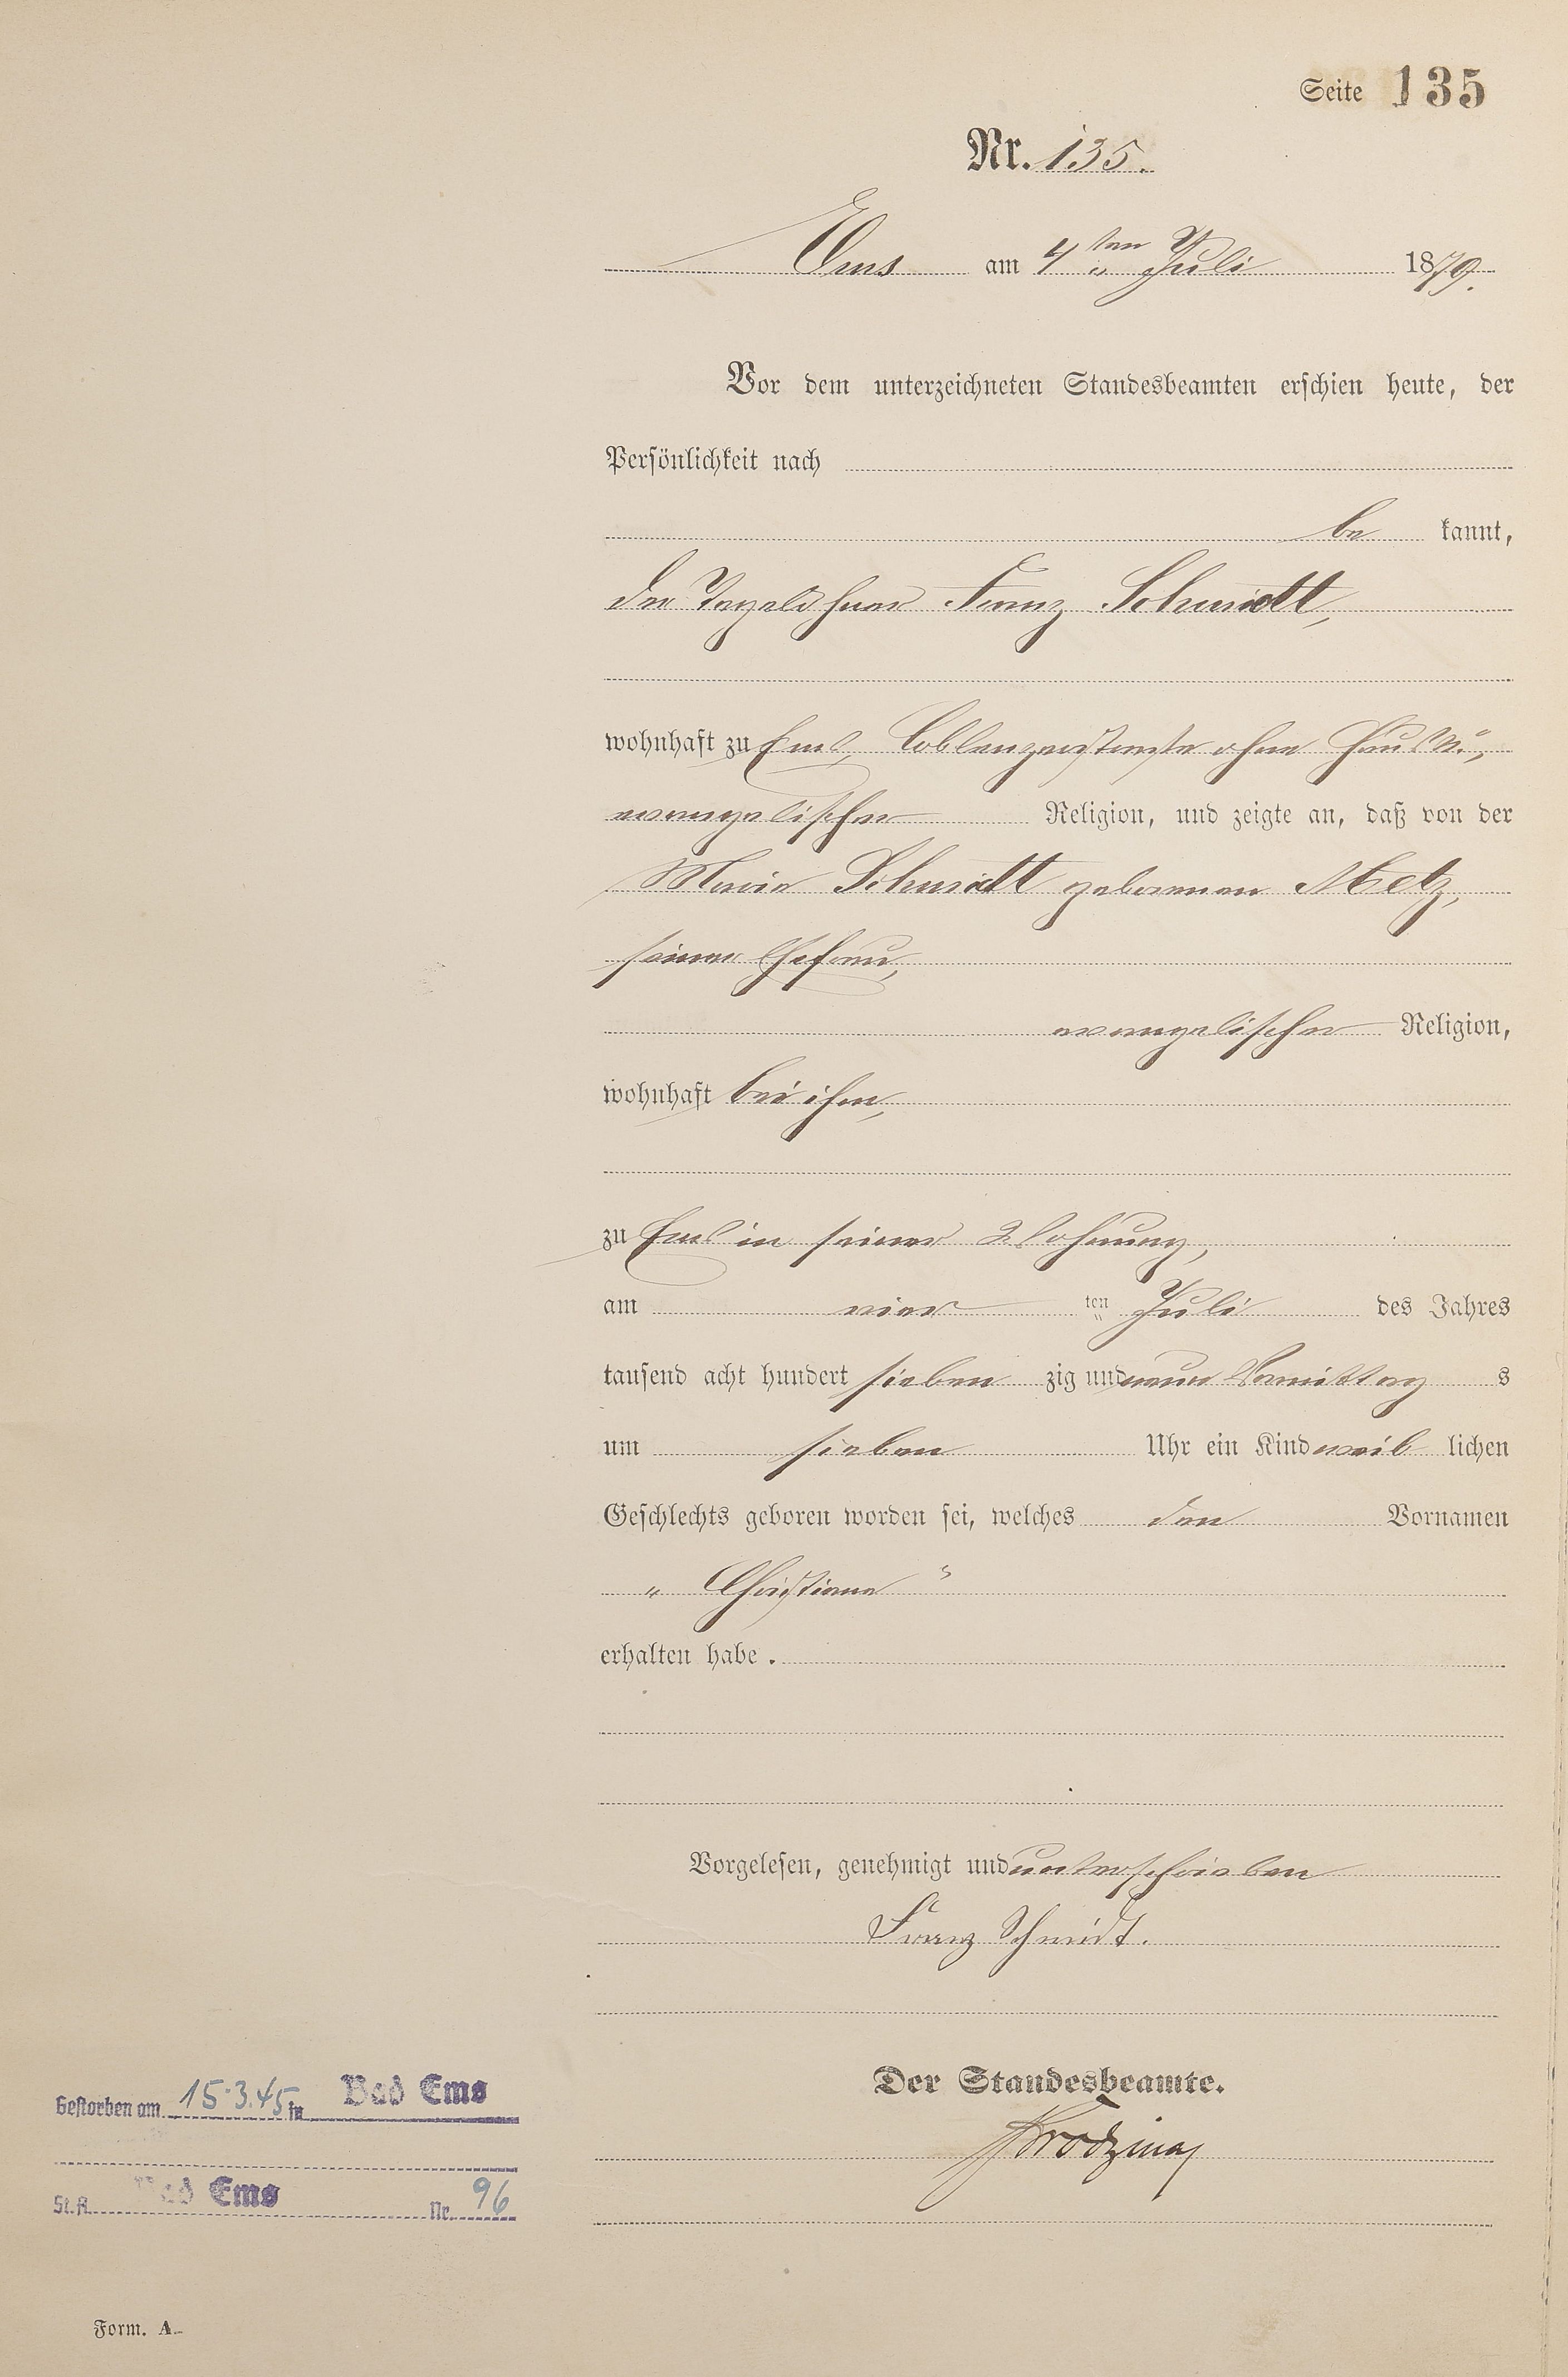 Seite 135
Nr. 135.
Ems am 4ten Juli 1879.
Vor dem unterzeichneten Standesbeamten erschien heute, der
Persönlichkeit nach
be kannt,
der Tagelöhner Franz Schmidt,
wohnhaft zu Ems, Coblenzerstraße ohne Haus Nr.,
evangelischer Religion, und zeigte an, daß von der
Marie Schmidt geborenen Metz,
seiner Ehefrau,
evangelischer Religion,
wohnhaft bei ihm,
zu Ems in seiner Wohnung,
am vier ten Juli des Jahres
tausend acht hundert sieben zig und neun Vormittag s
um sieben Uhr ein Kind weib lichen
Geschlechts geboren worden sei, welches den Vornamen
„ Christiane "
erhalten habe.
Vorgelesen, genehmigt und unterschrieben
Franz Schmidt.
Der Standesbeamte.
Gestorben am 15.3.45 in Bad Ems
St.A. Bad Ems Nr. 96
Form. A.